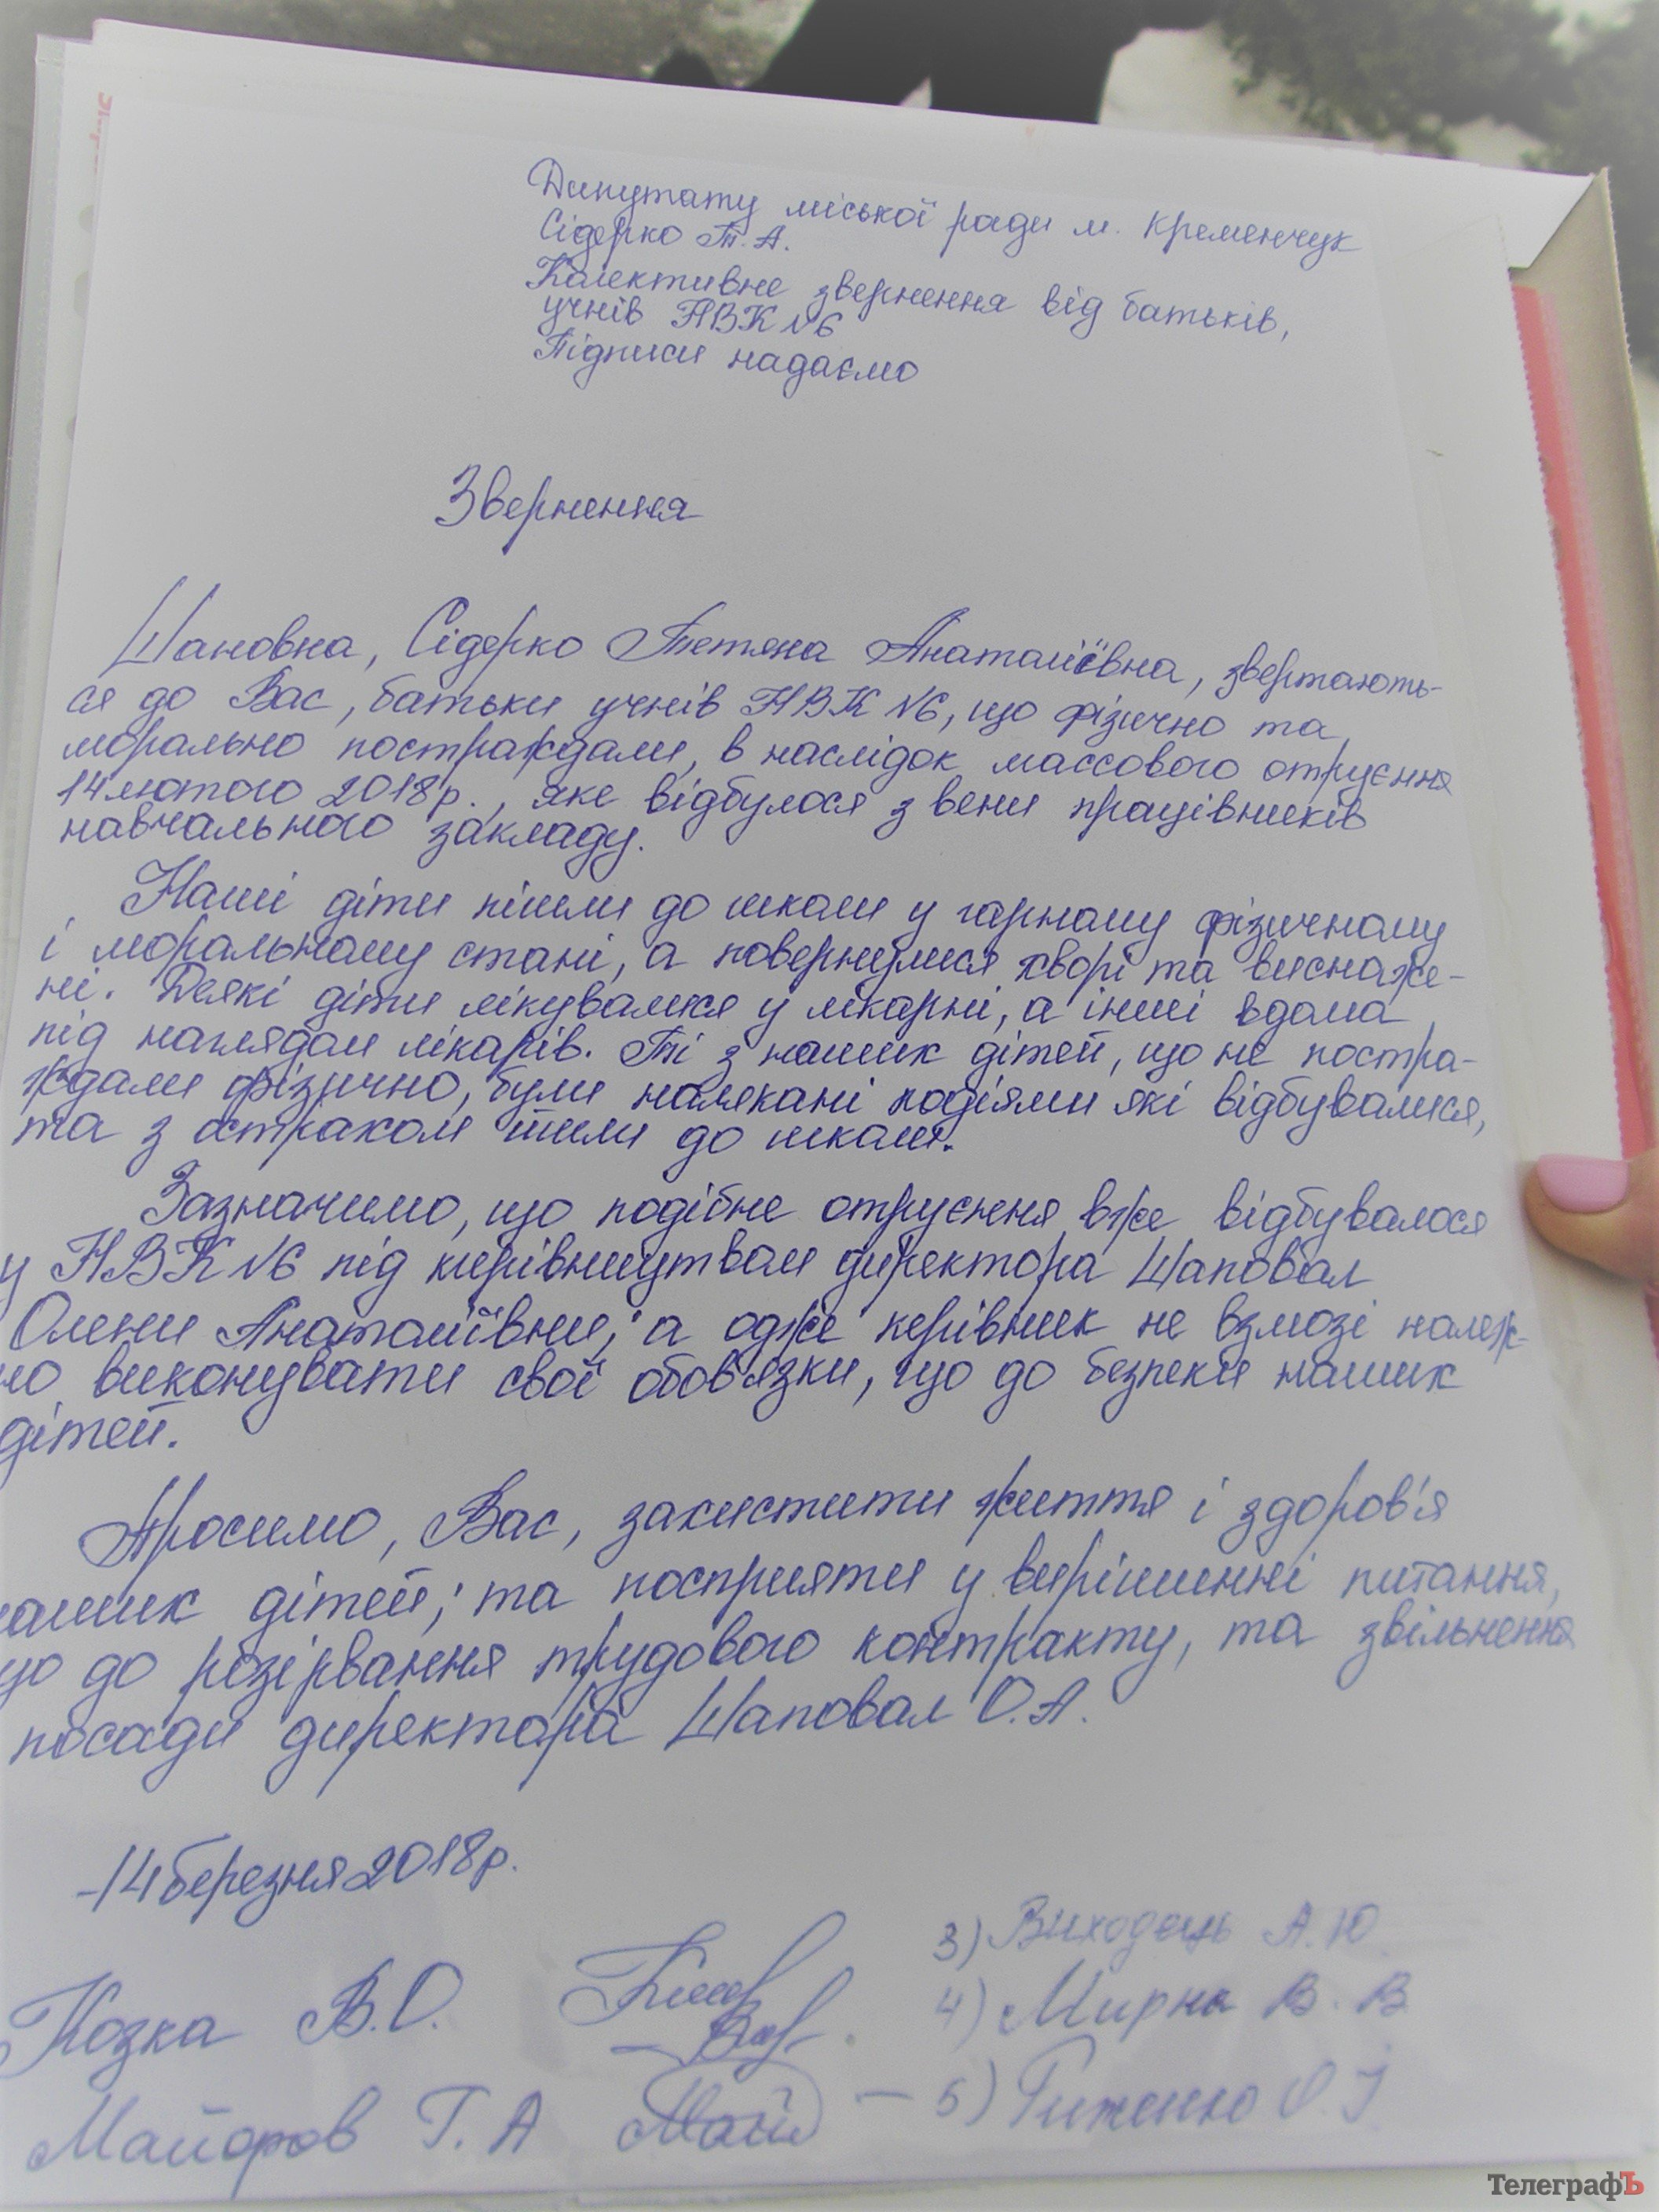 Дипутату міської ради м. Кременчук
Сідерко Т. А.
Колективне звернення від батьків,
учнів НВК №6
Підписи надаємо
Звернення
Шановна, Сідерко Тетяна Анатоліївна, звертають-
ся до Вас, батьки учнів НВК №6, що фізично та
морально постраждали, в наслідок массового отруєння
14 лютого 2018р., яке відбулося з вени працівників
навчального закладу.
Наші діти пішли до школи у гарному фізичному
і моральному стані, а повернулися хворі та виснаже-
ні. Деякі діти лікувалися у лікарні, а інші вдома
під наглядом лікарів. Ті з наших дітей, що не постра-
ждали фізично, були налякані подіями які відбувалися,
та з острахом йшли до школи.
Зазначимо, що подібне отруєння вже відбувалося
у НВК №6 під керівництвом директора Шаповал
Олени Анатоліївни, а отже керівник не взмозі належ-
но виконувати свої обов'язки, що до безпеки наших
дітей.
Просимо, Вас, захистити життя і здоров'я
наших дітей, та посприяти у вирішинні питання,
що до розірвання трудового контракту, та звільнення
посади директора Шаповал О.А.
14 березня 2018р.
Козка В.О.
3) Виходець А.Ю.
4) Мирна В. В.
Майоров Г. А
5)
ТелеграфЪ